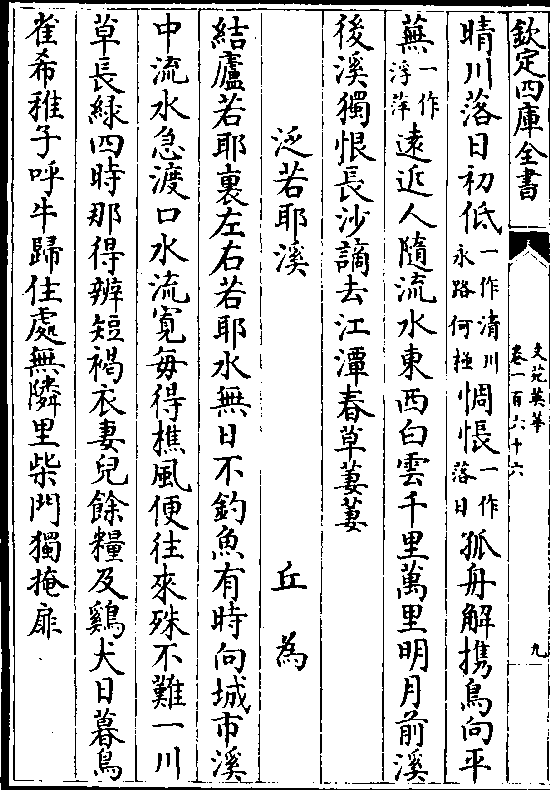 欽定四庫全書
文苑英華
卷一百六十六
九
晴川落日初低一作清川永路何極惆悵一作落日孤舟解攜鳥向平
蕪一作浮萍遠近人隨流水東西白雲千里萬里明月前溪
後溪獨恨長沙謫去江潭春草萋萋
泛若耶溪 丘為
結廬若耶裏左右若耶水無日不釣魚有時向城市溪
中流水急渡口水流寛每得樵風便往來殊不難一川
草長緑四時那得辨短褐衣妻兒餘糧及鷄犬日暮鳥
雀希稚子呼牛歸住處無隣里柴門獨掩扉